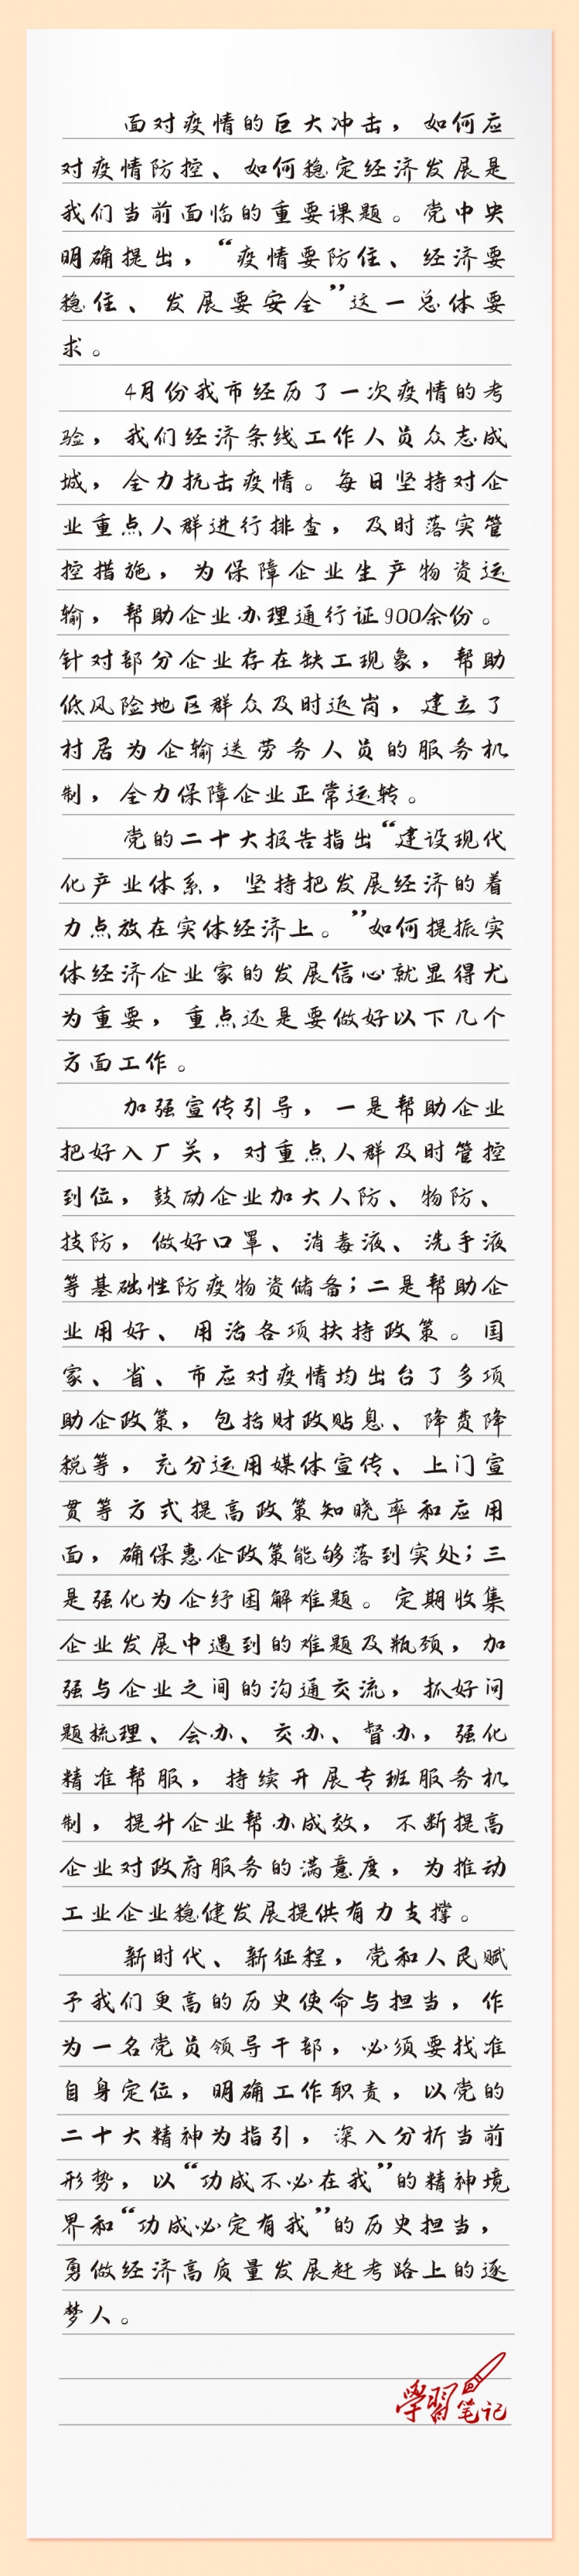 面对疫情的巨大冲击，如何应
对疫情防控、如何稳定经济发展是
我们当前面临的重要课题。党中央
明确提出，“疫情要防住、经济要
稳住、发展要安全”这一总体要
求。
4月份我市经历了一次疫情的考
验，我们经济条线工作人员众志成
城，全力抗击疫情。每日坚持对企
业重点人群进行排查，及时落实管
控措施，为保障企业生产物资运
输，帮助企业办理通行证900余份。
针对部分企业存在缺工现象，帮助
低风险地区群众及时返岗，建立了
村居为企输送劳务人员的服务机
制，全力保障企业正常运转。
党的二十大报告指出“建设现代
化产业体系，坚持把发展经济的着
力点放在实体经济上。”如何提振实
体经济企业家的发展信心就显得尤
为重要，重点还是要做好以下几个
方面工作。
加强宣传引导，一是帮助企业
把好入厂关，对重点人群及时管控
到位，鼓励企业加大人防、物防、
技防，做好口罩、消毒液、洗手液
等基础性防疫物资储备；二是帮助企
业用好、用活各项扶持政策。国
家、省、市应对疫情均出台了多项
助企政策，包括财政贴息、降费降
税等，充分运用媒体宣传、上门宣
贯等方式提高政策知晓率和应用
面，确保惠企政策能够落到实处；三
是强化为企纾困解难题。定期收集
企业发展中遇到的难题及瓶颈，加
强与企业之间的沟通交流，抓好问
题梳理、会办、交办、督办，强化
精准帮服，持续开展专班服务机
制，提升企业帮办成效，不断提高
企业对政府服务的满意度，为推动
工业企业稳健发展提供有力支撑。
新时代、新征程，党和人民赋
予我们更高的历史使命与担当，作
为一名党员领导干部，必须要找准
自身定位，明确工作职责，以党的
二十大精神为指引，深入分析当前
形势，以“功成不必在我”的精神境
界和“功成必定有我”的历史担当，
勇做经济高质量发展赶考路上的逐
梦人。
學習笔记